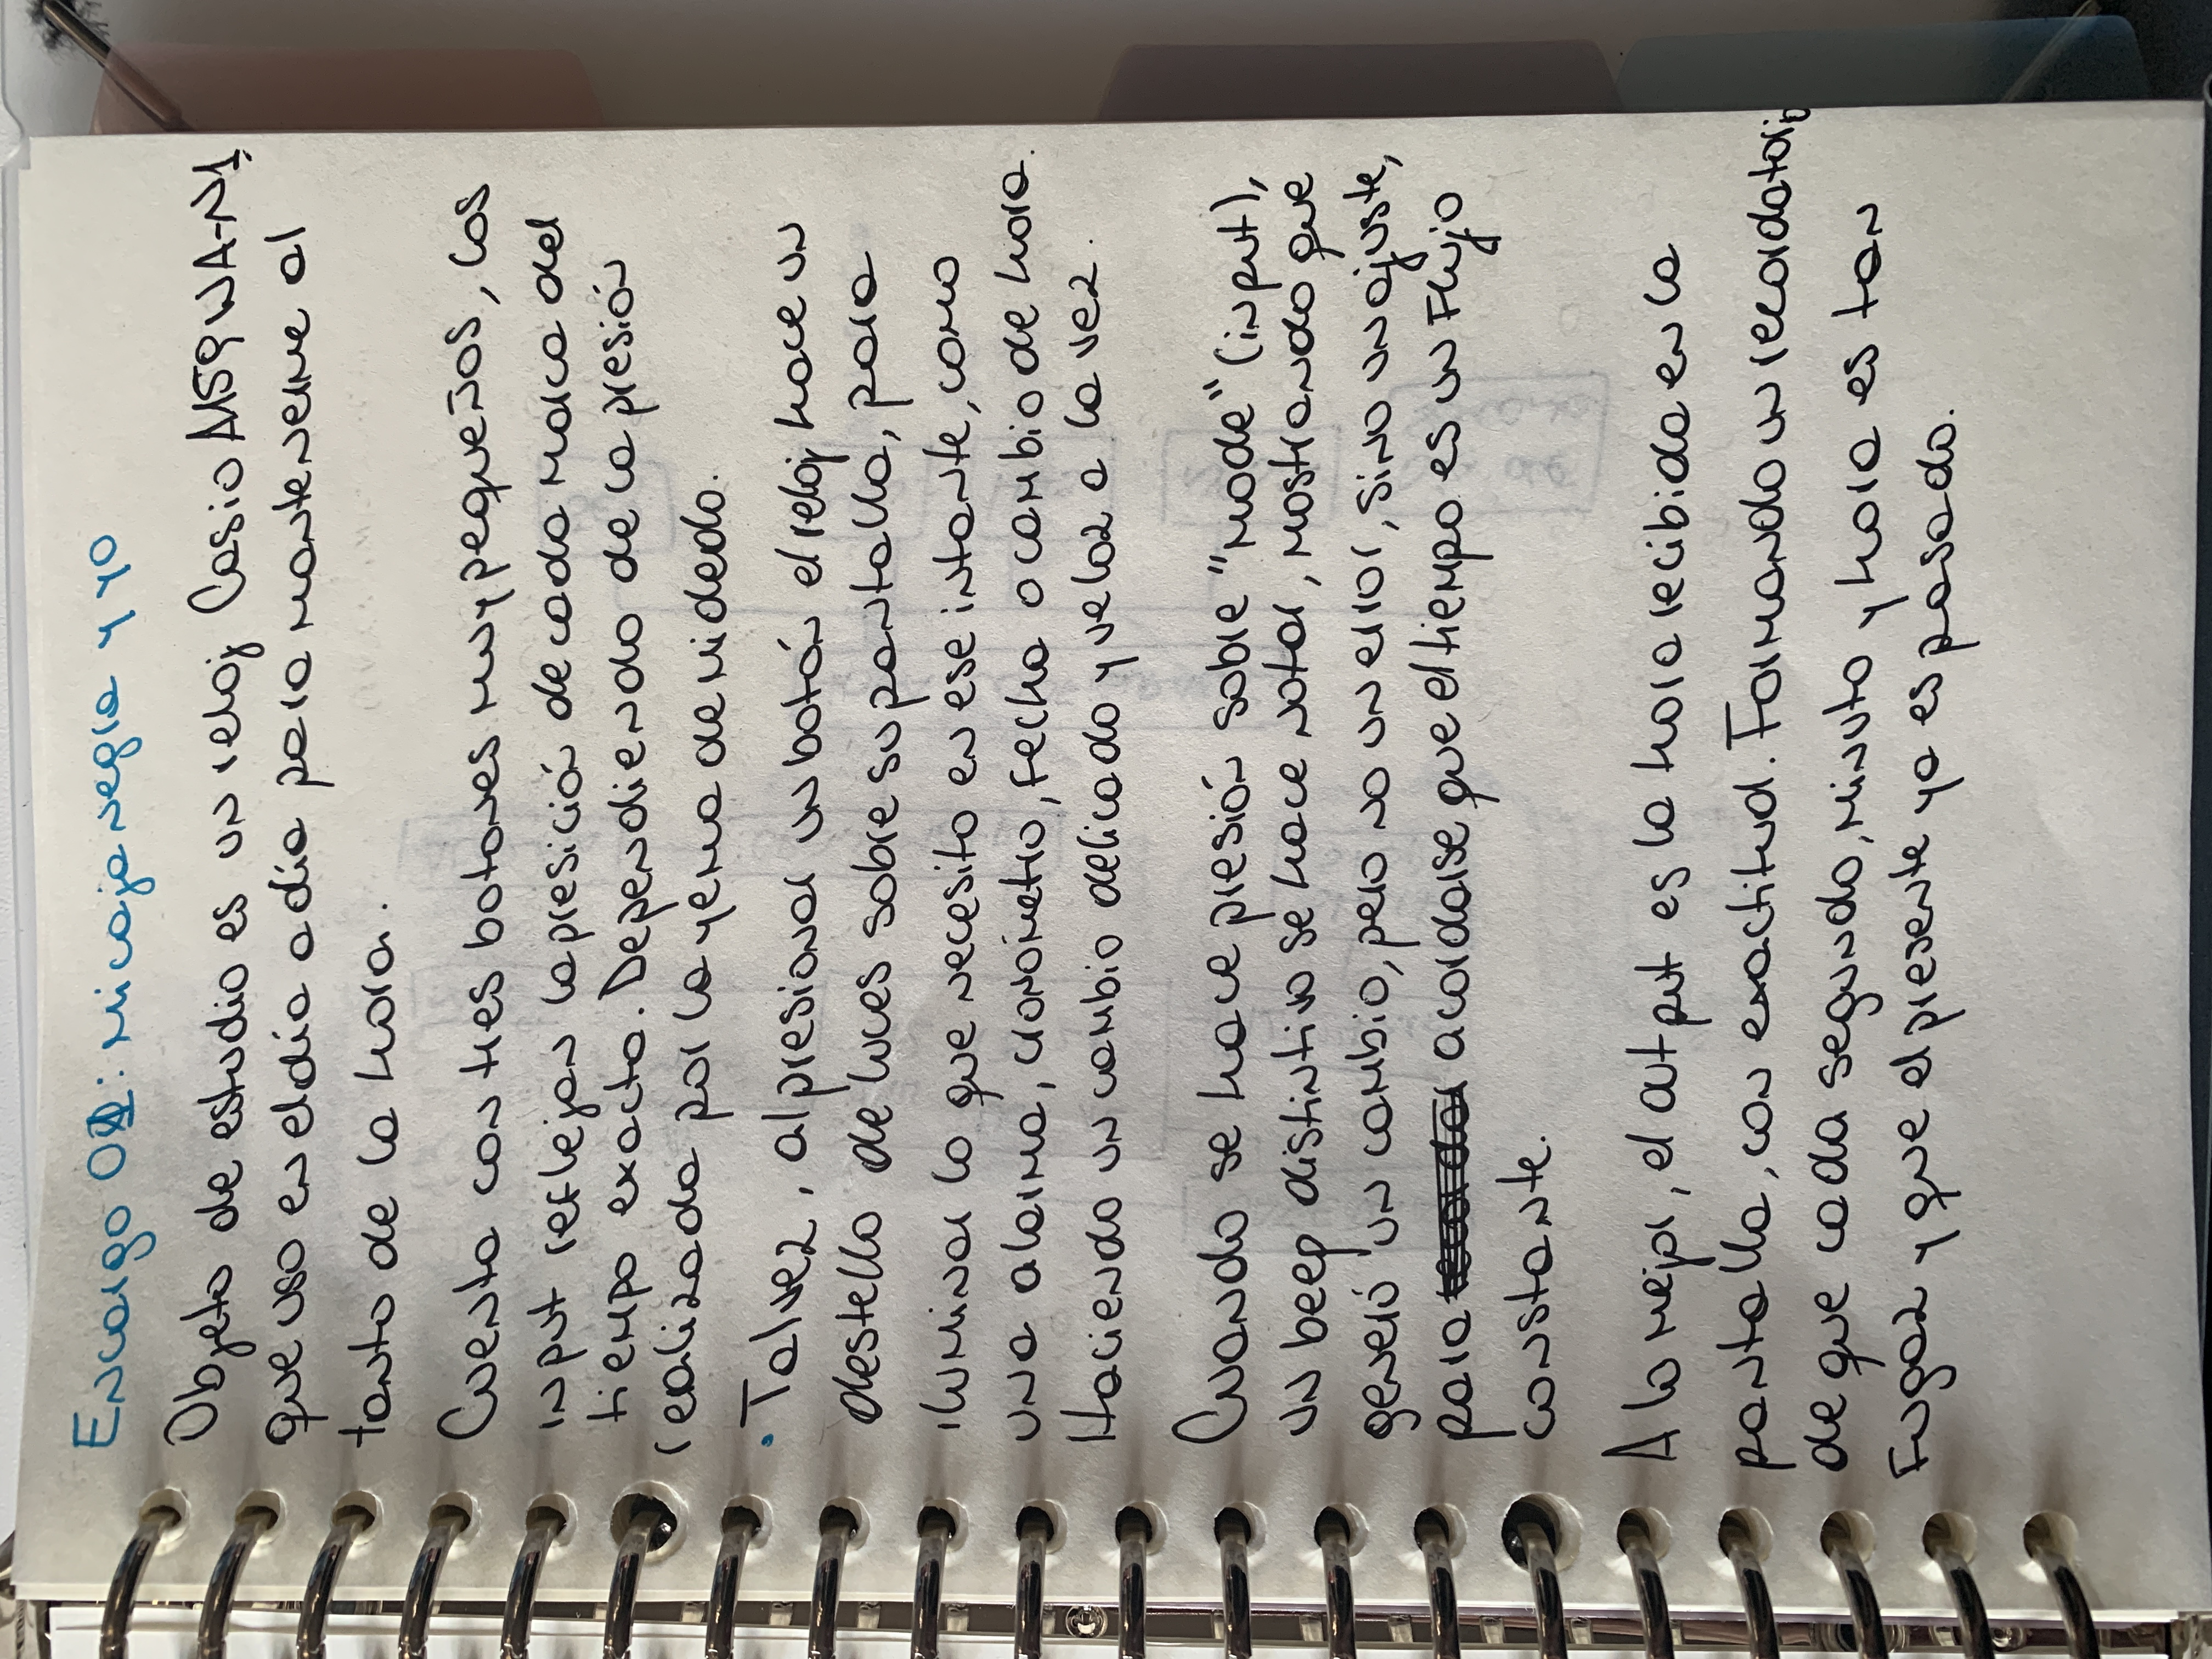 Encargo 01: Mi caja negra y yo
Objeto de estudio es un reloj Casio A159WA-N1,
que uso en el día a día para mantenerme al
tanto de la hora.
Cuenta con tres botones muy pequeños, los
input reflejan la presición de cada marca del
tiempo exacto. Dependiendo de la presión
realizada por la yema de mi dedo.
• Tal vez, al presionar un botón el reloj hace un
destello de luces sobre su pantalla, para
iluminar lo que necesito en ese intante, como
una alarma, cronómetro, fecha o cambio de hora.
Haciendo un cambio delicado y veloz a la vez.
Cuando se hace presión sobre "mode" (input),
un beep distintivo se hace notar, mostrando que
generó un cambio, pero no un error, sino un ajuste,
para recordar acordarse que el tiempo es un flujo
constante.
A lo mejor, el output es la hora recibida en la
pantalla, con exactitud. Formando un recordatorio
de que cada segundo, minuto y hora es tan
fugaz y que el presente ya es pasado.